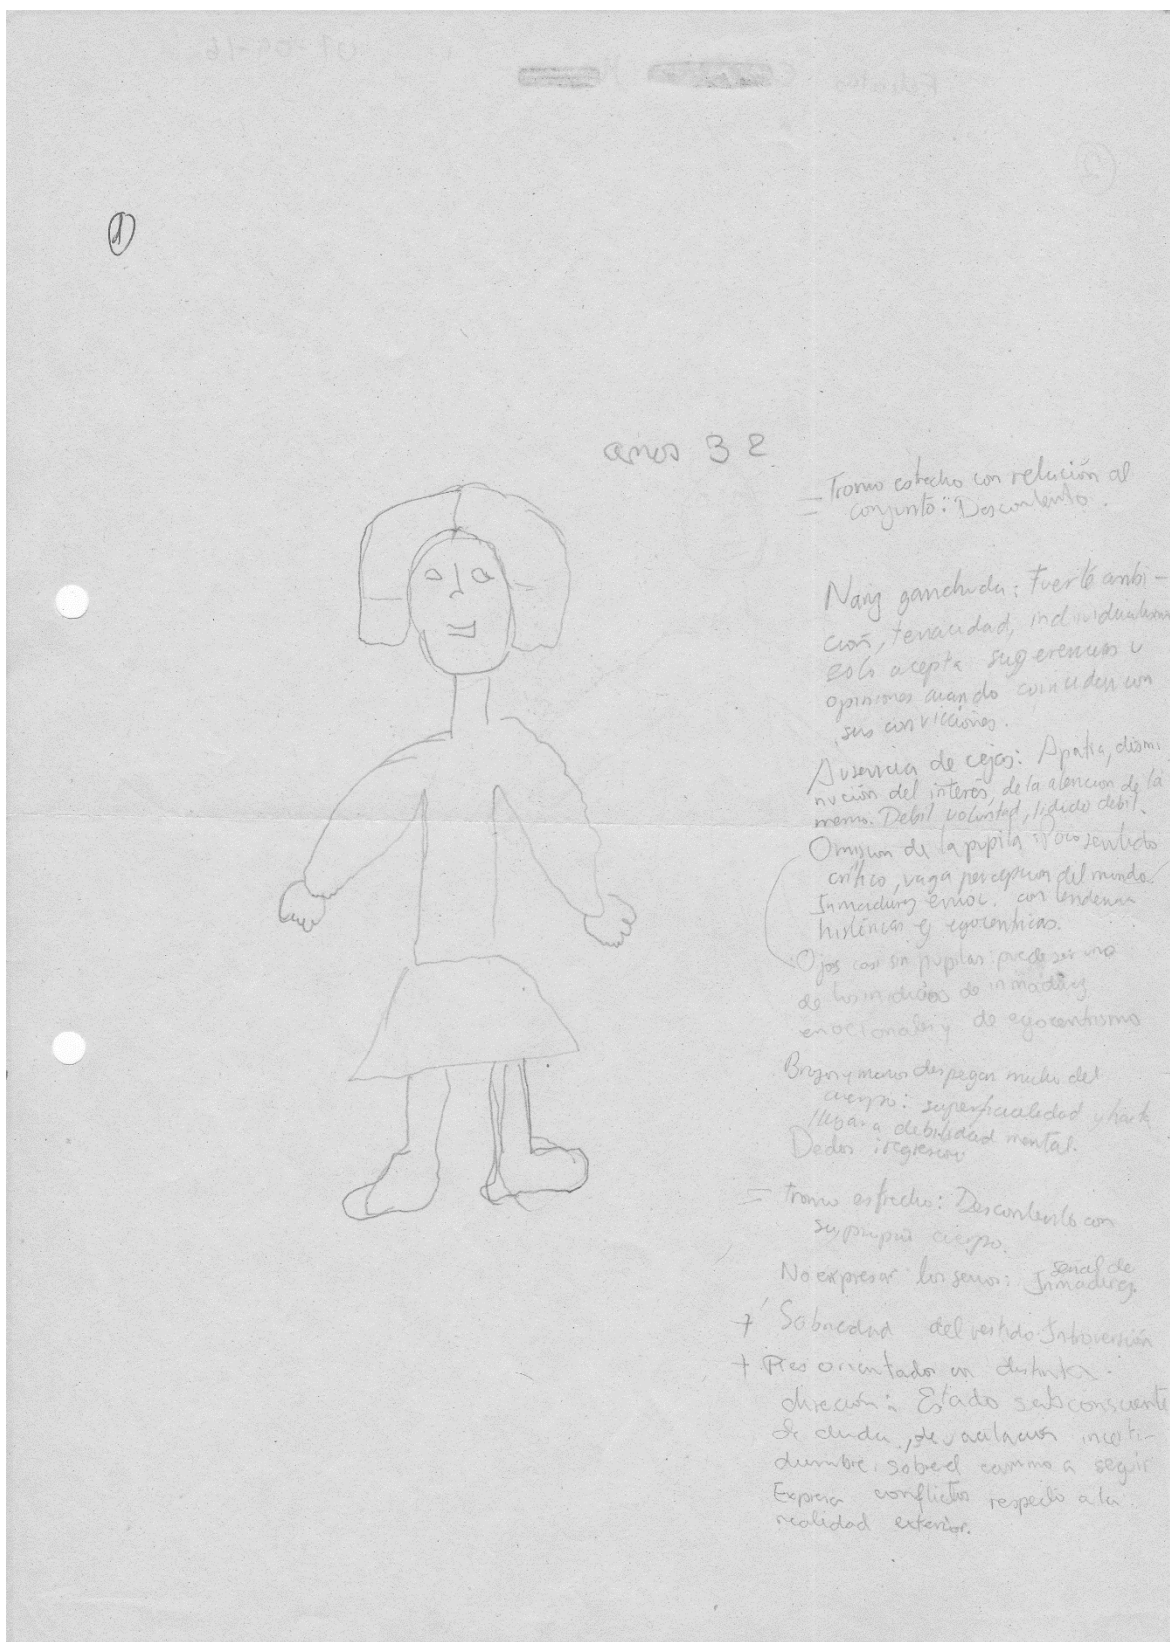 1
años 32
= Tronco estrecho con relación al
conjunto: Descontento.
Nariz ganchuda: Fuerte ambi-
ción, tenacidad, individualismo
solo acepta sugerencias u
opiniones cuando coinciden con
sus convicciones.
Ausencia de cejas: Apatia, dismi
nución del interés, de la atencion de la
memo. Debil voluntad, libido debil.
Omision de la pupila: Poco sentido
crítico, vaga percepcion del mundo.
Inmadurez emoc. con tendencia
histéricas y egocentricas.
Ojos casi sin pupilas: puede ser uno
de los indicios de inmadurez
emocional y de egocentrismo
Brazos y manos despegan mucho del
cuerpo: superficialidad y hasta
llegar a debilidad mental.
Dedos
= Tronco estrecho: Descontento con
su propio cuerpo.
No expresar los senos: señal de
Inmadurez.
+ Sobriedad del vestido: Introversión
+ Pies orientados en distinta
dirección: Estado subconsciente
de duda, de vacilacion incerti-
dumbre. sobre el camino a seguir
Expresa conflictos respecto a la
realidad exterior.